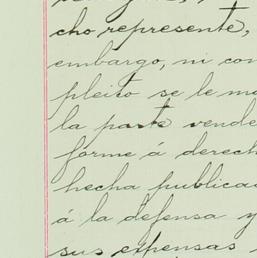 cho represente,
embargo, ni con
pleito se le m
la parte vende
forme á derech
hecha publica
á la defensa y
sus expensas